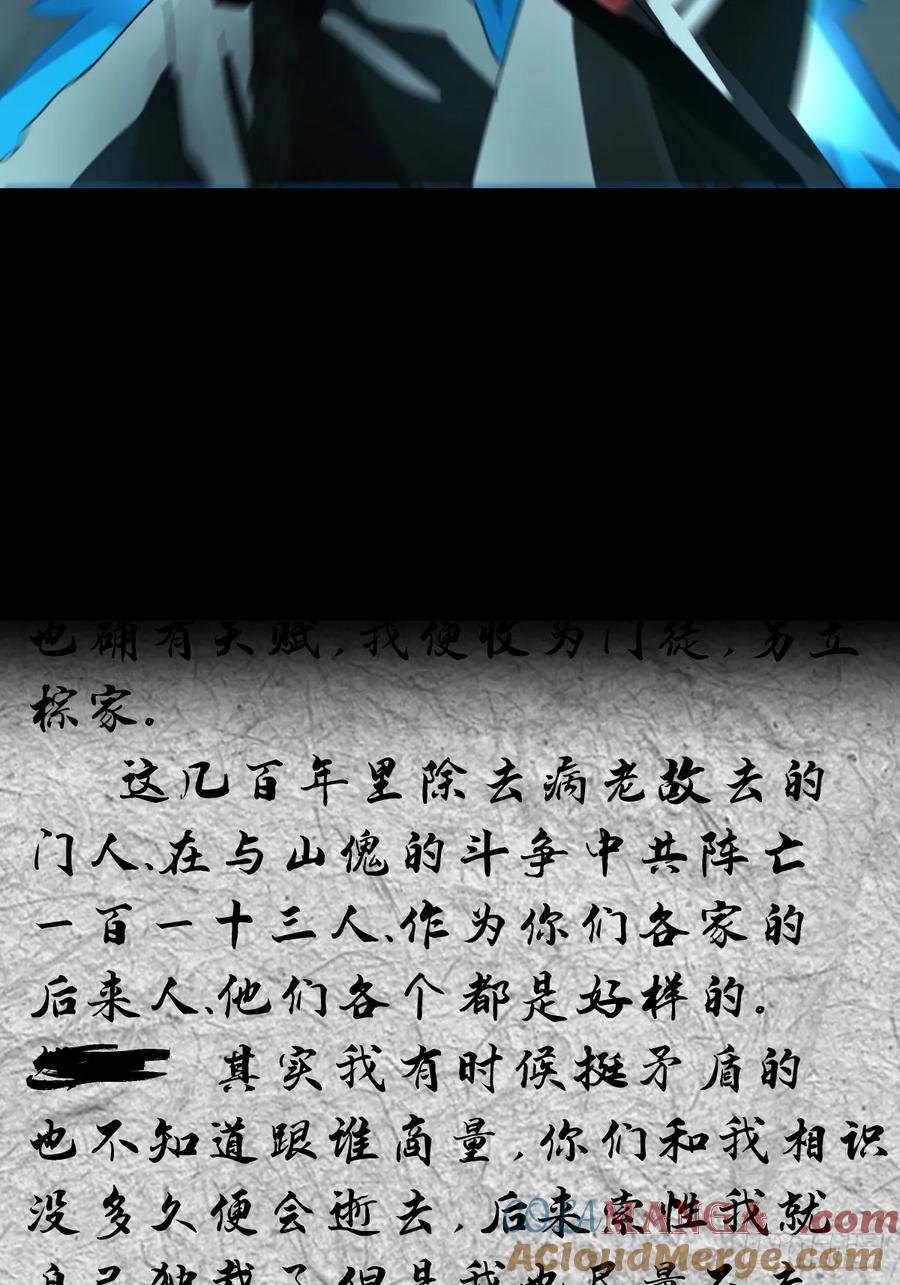 也确有天赋,我便收为门徒,另立
棕家。
这几百年里除去病老故去的
门人、在与山傀的斗争中共阵亡
一百一十三人、作为你们各家的
后来人、他们各个都是好样的。
其实我有时候挺矛盾的
也不知道跟谁商量,你们和我相识
没多久便会逝去,后来索性我就
自己独裁了但是我也尽量不
MANGA.com
ACloudMerge.com